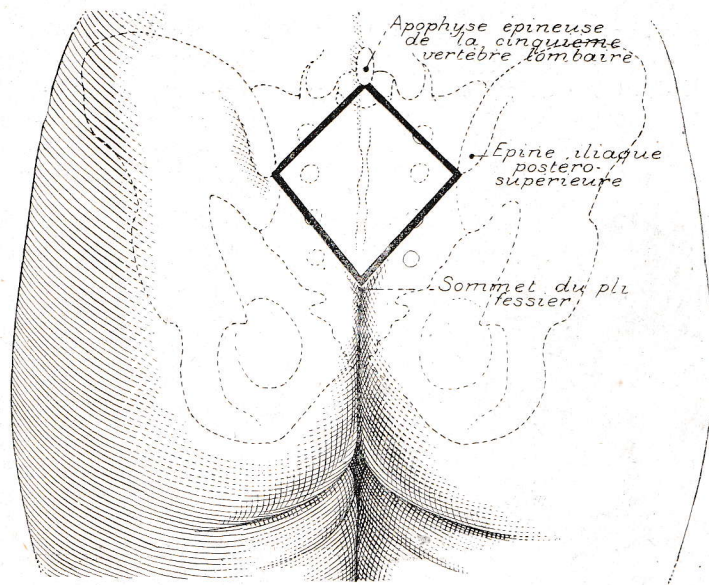 Apophyse épineuse
de la cinquième
vertèbre lombaire
Epine iliaque
postero-
supérieure
Sommet du pli
fessier